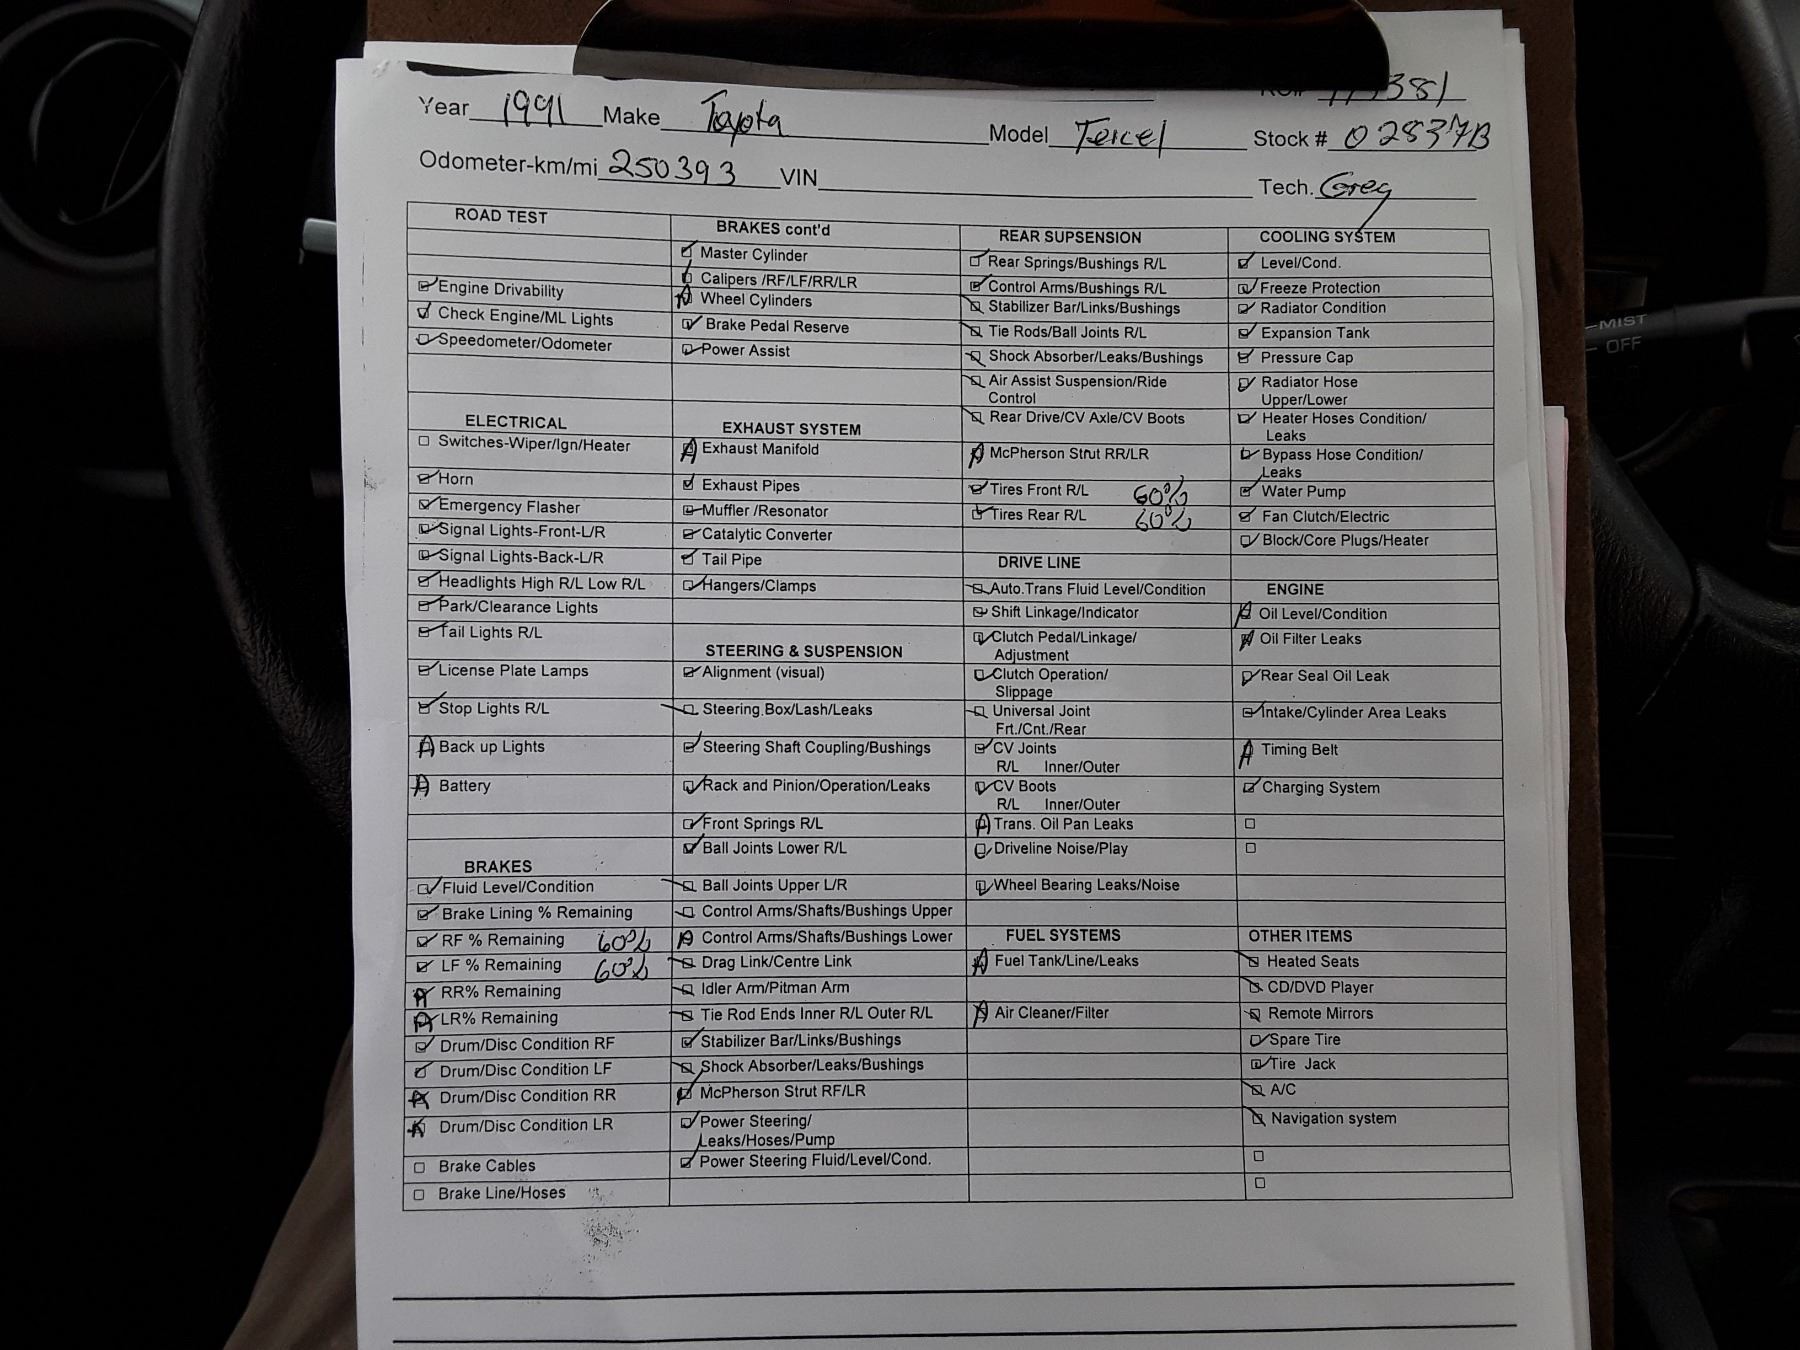 Year 1991 Make Toyota Model Tercel Stock # 02837B
Odometer-km/mi 250393 VIN Tech. Greg
ROAD TEST
Engine Drivability
Check Engine/ML Lights
Speedometer/Odometer
ELECTRICAL
Switches-Wiper/Ign/Heater
Horn
Emergency Flasher
Signal Lights-Front-L/R
Signal Lights-Back-L/R
Headlights High R/L Low R/L
Park/Clearance Lights
Tail Lights R/L
License Plate Lamps
Stop Lights R/L
A Back up Lights
A Battery
BRAKES
Fluid Level/Condition
Brake Lining % Remaining
RF % Remaining 60%
LF % Remaining 60%
A RR% Remaining
A LR% Remaining
Drum/Disc Condition RF
Drum/Disc Condition LF
A Drum/Disc Condition RR
A Drum/Disc Condition LR
Brake Cables
Brake Line/Hoses
BRAKES cont'd
Master Cylinder
Calipers /RF/LF/RR/LR
A Wheel Cylinders
Brake Pedal Reserve
Power Assist
EXHAUST SYSTEM
A Exhaust Manifold
Exhaust Pipes
Muffler /Resonator
Catalytic Converter
Tail Pipe
Hangers/Clamps
STEERING & SUSPENSION
Alignment (visual)
Steering Box/Lash/Leaks
Steering Shaft Coupling/Bushings
Rack and Pinion/Operation/Leaks
Front Springs R/L
Ball Joints Lower R/L
Ball Joints Upper L/R
Control Arms/Shafts/Bushings Upper
A Control Arms/Shafts/Bushings Lower
Drag Link/Centre Link
Idler Arm/Pitman Arm
Tie Rod Ends Inner R/L Outer R/L
Stabilizer Bar/Links/Bushings
Shock Absorber/Leaks/Bushings
McPherson Strut RF/LR
Power Steering/
Leaks/Hoses/Pump
Power Steering Fluid/Level/Cond.
REAR SUPSENSION
Rear Springs/Bushings R/L
Control Arms/Bushings R/L
Stabilizer Bar/Links/Bushings
Tie Rods/Ball Joints R/L
Shock Absorber/Leaks/Bushings
Air Assist Suspension/Ride
Control
Rear Drive/CV Axle/CV Boots
A McPherson Strut RR/LR
Tires Front R/L 60%
Tires Rear R/L 60%
DRIVE LINE
Auto.Trans Fluid Level/Condition
Shift Linkage/Indicator
Clutch Pedal/Linkage/
Adjustment
Clutch Operation/
Slippage
Universal Joint
Frt./Cnt./Rear
CV Joints
R/L Inner/Outer
CV Boots
R/L Inner/Outer
A Trans. Oil Pan Leaks
Driveline Noise/Play
Wheel Bearing Leaks/Noise
FUEL SYSTEMS
A Fuel Tank/Line/Leaks
A Air Cleaner/Filter
COOLING SYSTEM
Level/Cond.
Freeze Protection
Radiator Condition
Expansion Tank
Pressure Cap
Radiator Hose
Upper/Lower
Heater Hoses Condition/
Leaks
Bypass Hose Condition/
Leaks
Water Pump
Fan Clutch/Electric
Block/Core Plugs/Heater
ENGINE
A Oil Level/Condition
A Oil Filter Leaks
Rear Seal Oil Leak
Intake/Cylinder Area Leaks
A Timing Belt
Charging System
OTHER ITEMS
Heated Seats
CD/DVD Player
Remote Mirrors
Spare Tire
Tire Jack
A/C
Navigation system
MIST
OFF